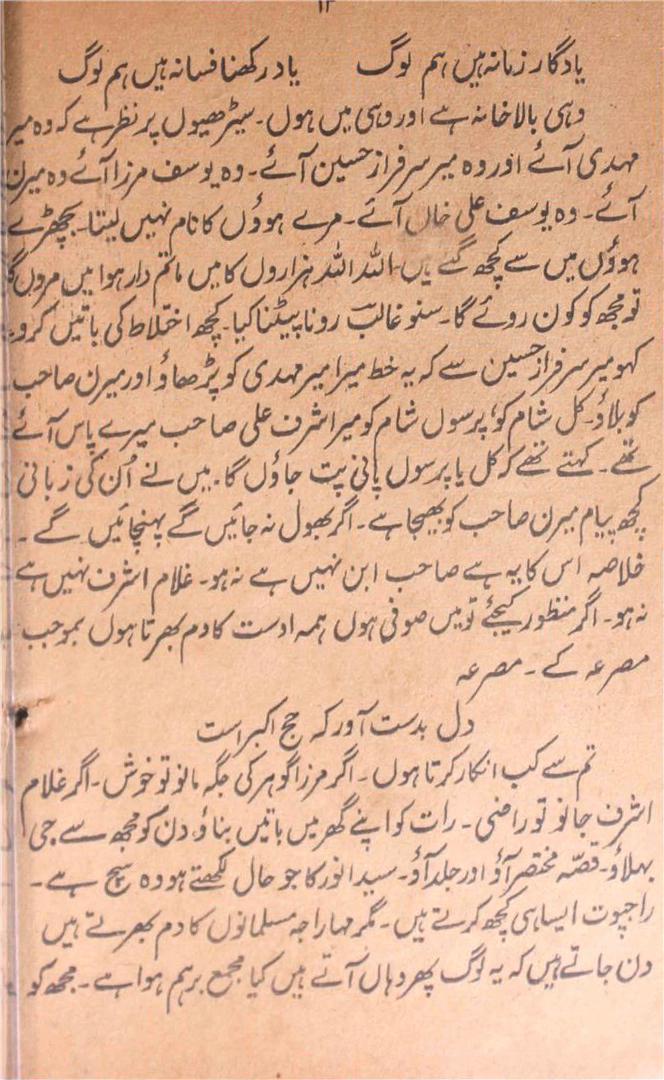 ۱۲
یادگار زمانہ ہیں ہم لوگ یاد رکھنا فسانہ ہیں ہم لوگ
وہی بالا خانہ ہے اور وہی میں ہوں۔ سیڑھیوں پر نظر ہے کہ وہ میر
مہدی آئے اور وہ میر سرفراز حسین آئے۔ وہ یوسف مرزا آئے وہ میرن
آئے۔ وہ یوسف علی خاں آئے۔ مرے ہوؤں کا نام نہیں لیتا۔ بچھڑے
ہوؤں میں سے کچھ گئے ہیں۔ اللہ اللہ ہزاروں کا میں ماتم دار ہوا میں مروں گا
تو مجھ کو کون روئے گا۔ سنو غالبؔ رونا پیٹنا کیا۔ کچھ اختلاط کی باتیں کرو۔
کہو میر سرفراز حسین سے کہ یہ خط میرا میر مہدی کو پڑھاؤ اور میرن صاحب
کو بلاؤ۔ کل شام کو، پرسوں شام کو میر اشرف علی صاحب میرے پاس آئے
تھے۔ کہتے تھے کہ کل یا پرسوں پانی پت جاؤں گا۔ میں نے اُن کی زبانی
کچھ پیام میرن صاحب کو بھیجا ہے۔ اگر بھول نہ جائیں گے پہنچائیں گے۔
خلاصہ اس کا یہ ہے صاحب ابن نہیں ہے نہ ہو۔ غلام اشرف نہیں ہے
نہ ہو۔ اگر منظور کیجئے تو میں صوفی ہوں ہمہ اوست کا دم بھرتا ہوں بموجب
مصرعہ کے۔ مصرعہ
دل بدست آور کہ حج اکبر است
تم سے کب انکار کرتا ہوں۔ اگر مرزا گوہر کی جگہ مانو تو خوش۔ اگر غلام
اشرف جانو تو راضی۔ رات کو اپنے گھر میں باتیں بناؤ، دن کو مجھ سے جی
بہلاؤ۔ قصّہ مختصر آؤ اور جلد آؤ۔ سید انور کا جو حال لکھتے ہو وہ سچ ہے۔
راجپوت ایسا ہی کچھ کرتے ہیں۔ مگر مہاراجہ مسلمانوں کا دم بھرتے ہیں
دن جاتے ہیں کہ یہ لوگ پھر وہاں آتے ہیں کیا مجمع برہم ہوا ہے۔ مجھ کو